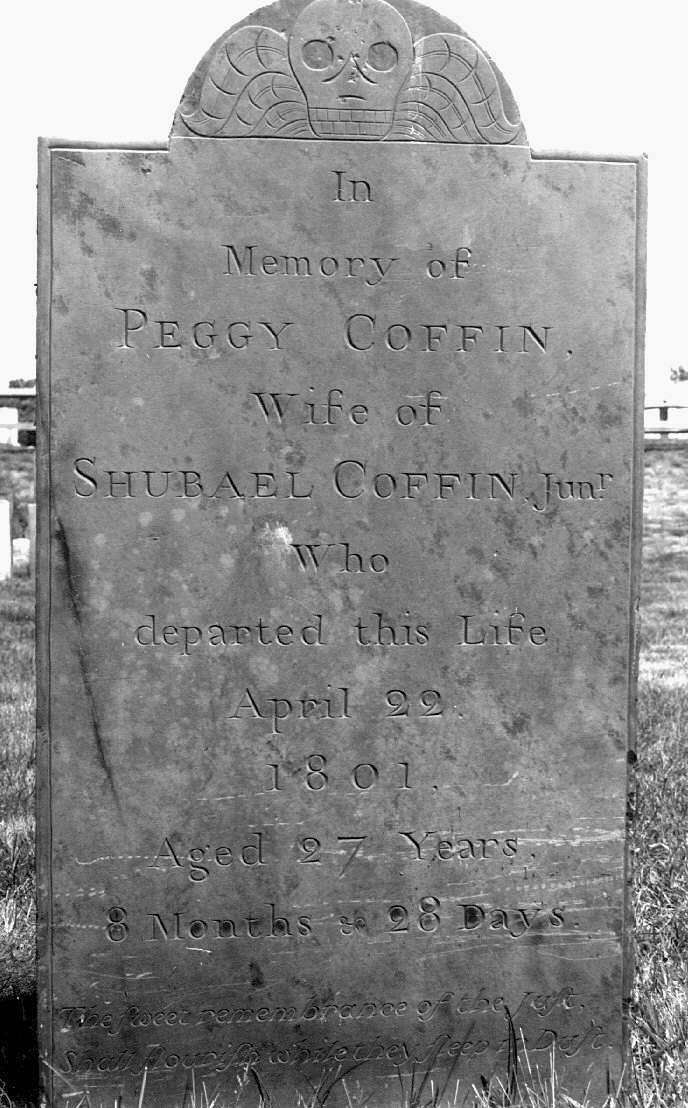 In
Memory of
PEGGY COFFIN,
Wife of
SHUBAEL COFFIN, Junr
Who
departed this Life
April 22.
1801,
Aged 27 Years.
8 Months & 28 Days.
The ſweet remembrance of the Juſt,
Shall flouriſh while they ſleep in Duſt.